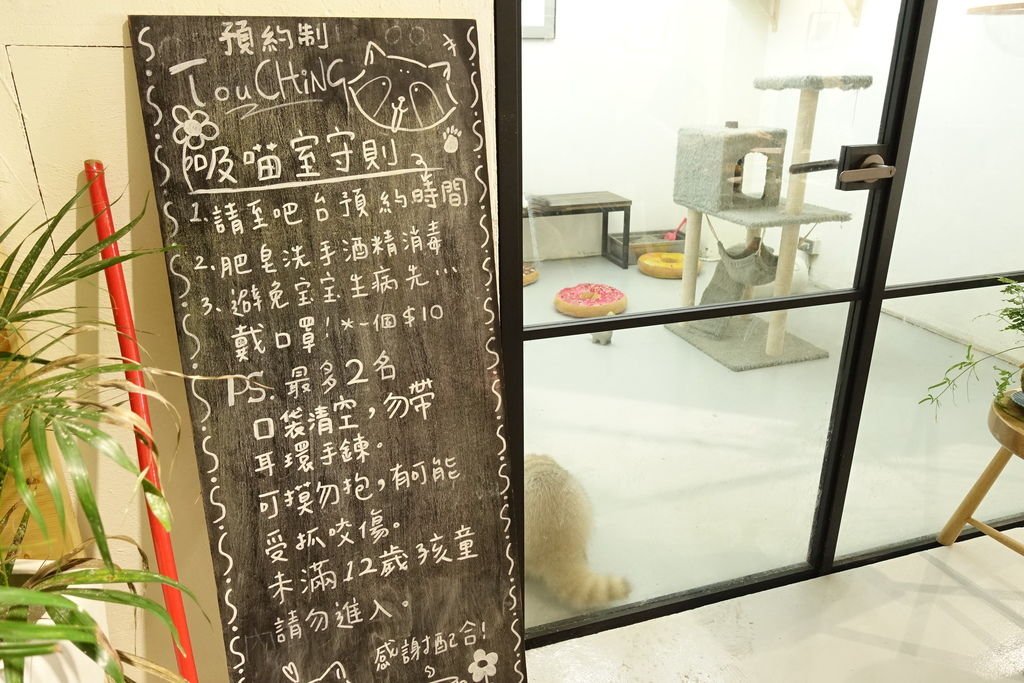 預約制
TouCHiNG
吸喵室守則
1.請至吧台預約時間
2.肥皂洗手酒精消毒
3.避免宝宝生病先...
戴口罩!*一個$10
PS.最多2名
口袋清空,勿帶
耳環手鍊。
可摸勿抱,有可能
受抓咬傷。
未滿12歲孩童
請勿進入。
感謝配合!